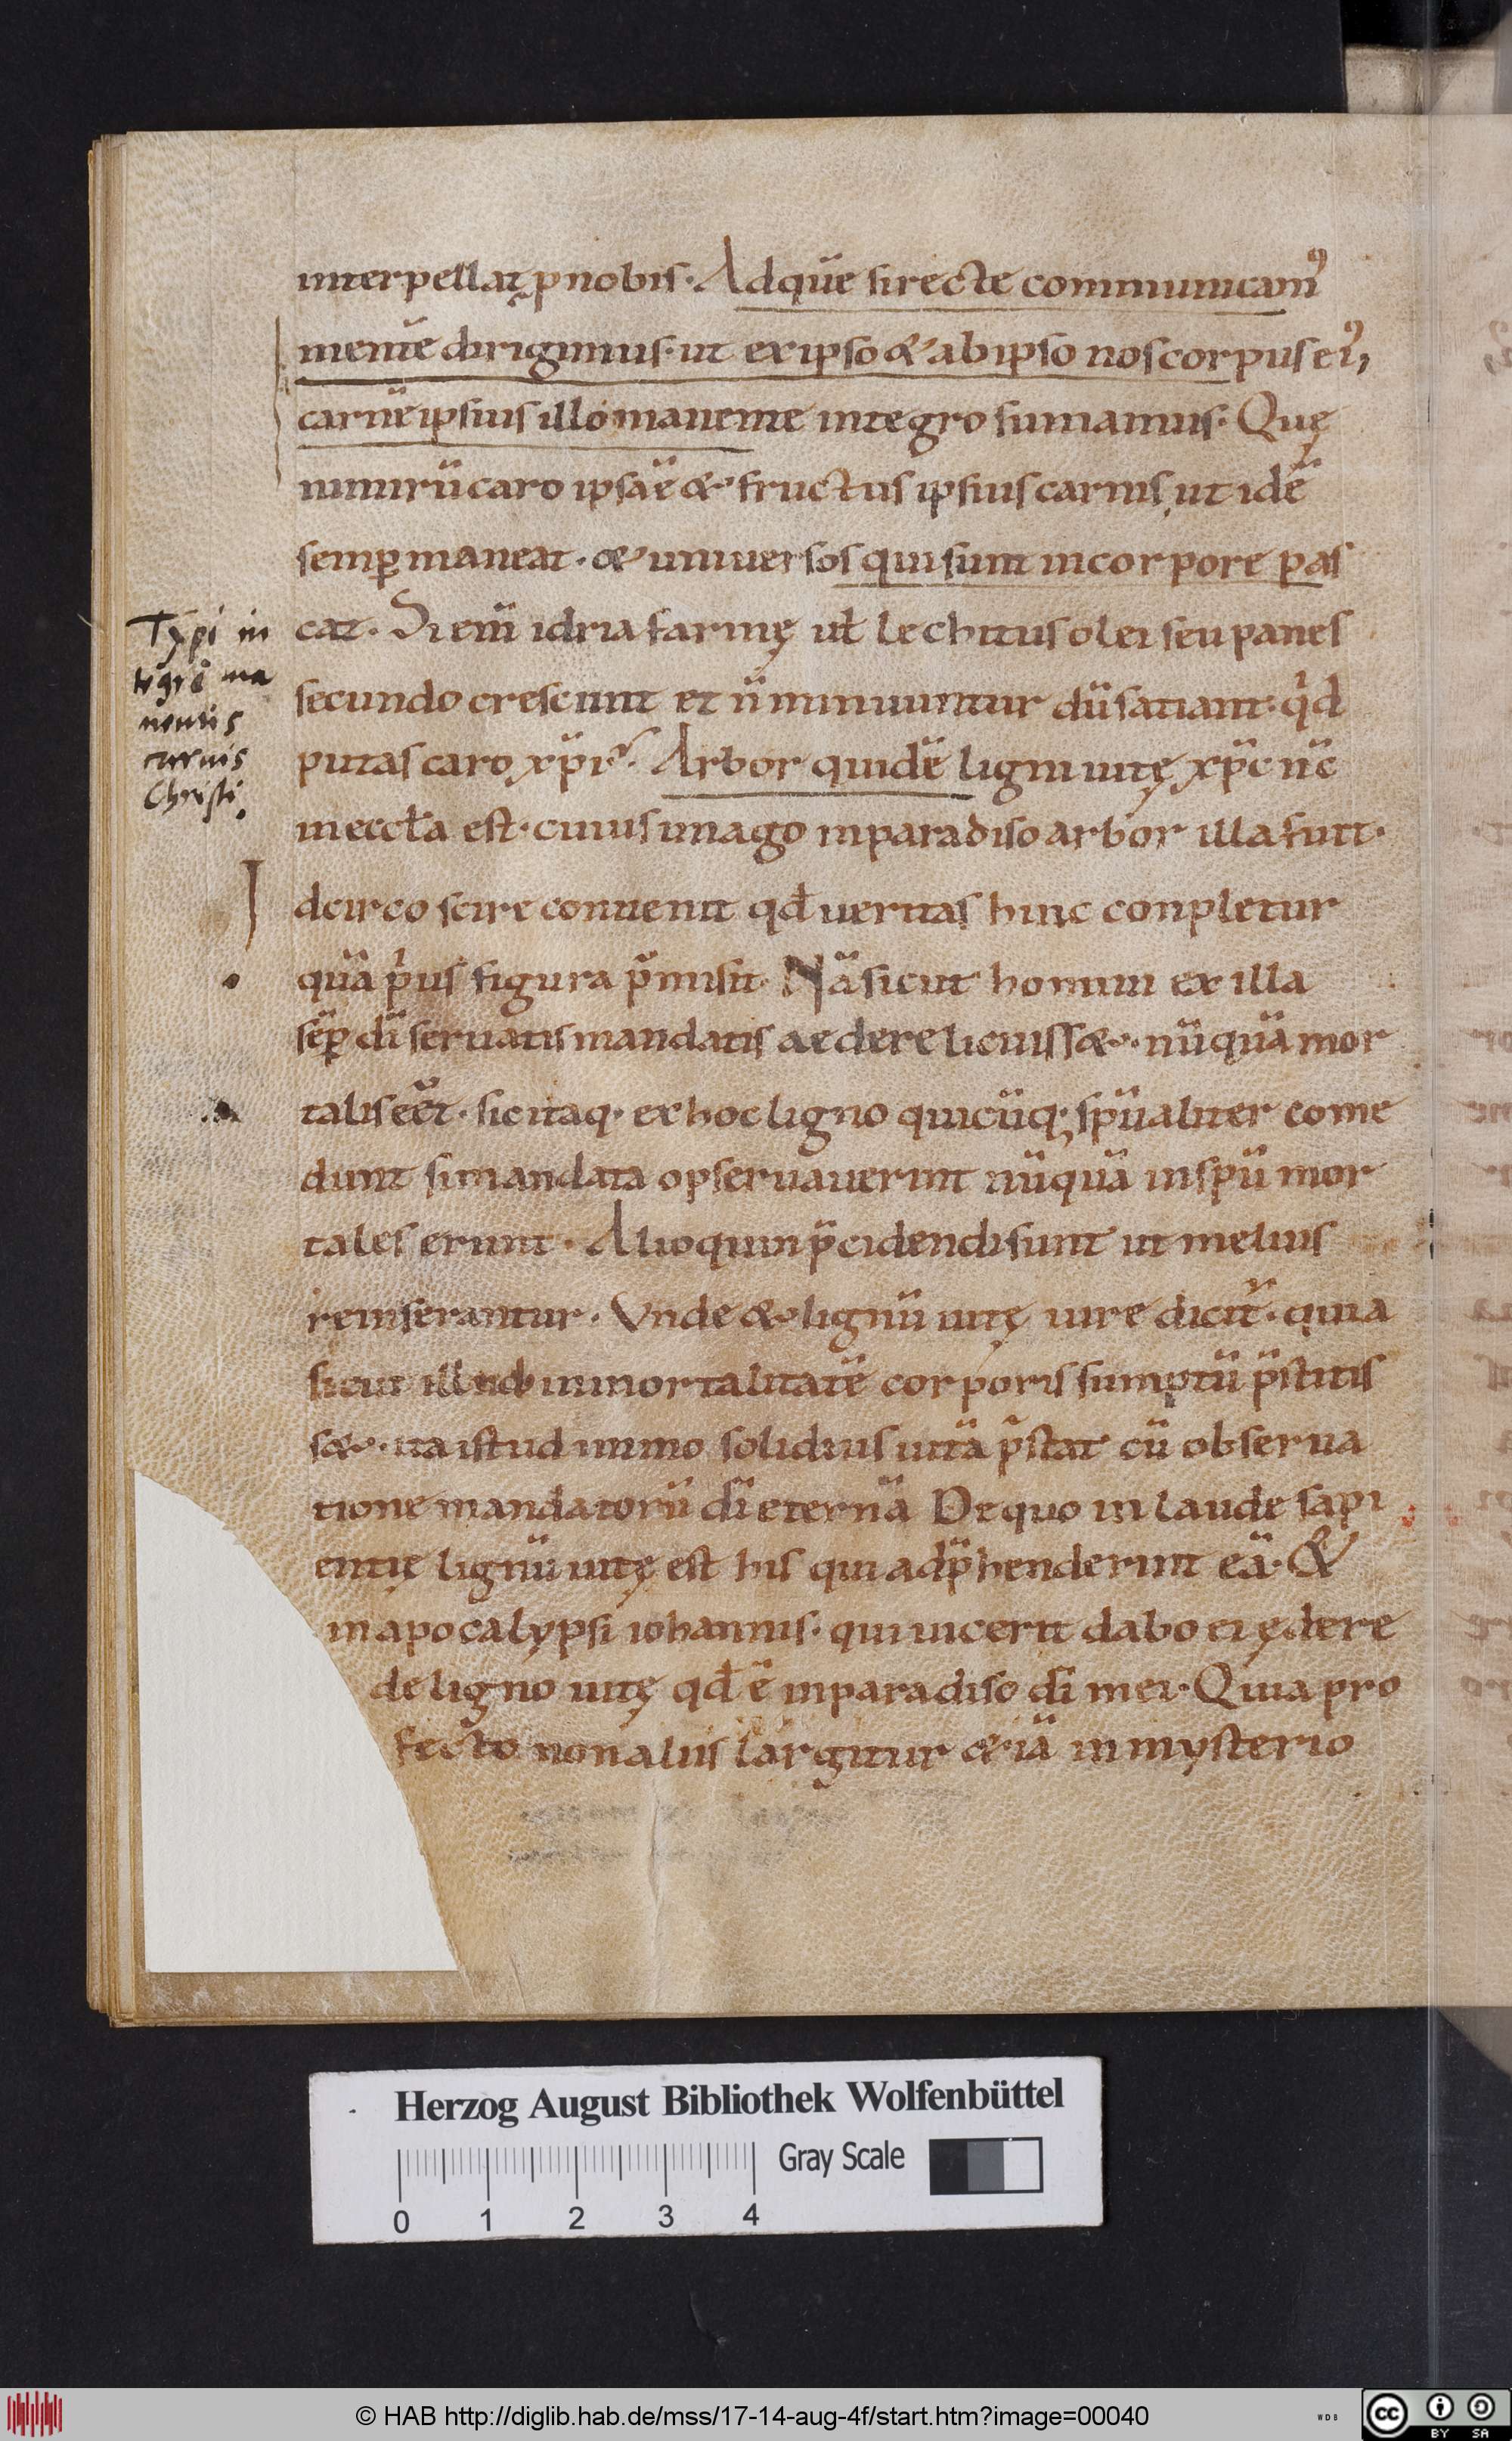 interpellat᷒ p nobis. Ad quē si recte communicam᷒
mentē dirigimus. ut ex ipso & ab ipso nos corpus ei᷒,
carnē ipsius illo manente integro sumamus. Quę
nimirū caro ipsa ē & fructus ipsius carnis, ut idē
semꝑ maneat. & uniuersos qui sunt in corpore pas
cat. Si enī idria farinę uł lechitus olei seu panes
secundo crescunt et n̄ minuuntur dū satiant. qͥd
putas caro xp̄i? Arbor quidē ligni uitę xp̄c nc̄
in eccła est. cuius imago in paradiso arbor illa fuit.
I
dcirco scire conuenit qđ ueritas hinc conpletur
quā pͥus figura p̄misit. Nā sicut homini ex illa
sēꝑ dī seruatis mandatis aedere licuiss&. nūquā mor
talis eēt. sic itaq; ex hoc ligno quicūq; sp̄ualiter come
dunt si mandata opseruauerint nūquā in sp̄u mor
tales erunt. Alioquin p̄cidendi sunt ut melius
reinserantur. Vnde & lignū uitę iure dicit᷒. quia
sicut illud inmortalitatē corporis sumptū p̄stitis
s&. ita istud immo solidius uitā p̄stat cū obserua
tione mandatorū dī eternā De quo in laude sapi
entię lignū uitę est his qui adp̄henderint eā. &
in apocalypsi iohannis. qui uicerit dabo ei ędere
de ligno uitę qđ ē in paradiso dī mei. Quia pro
fecto non alius largitur &iā in mysterio
Typi in
tegrē ma
nentis
carnis
Christi.
Herzog August Bibliothek Wolfenbüttel
Gray Scale
0 1 2 3 4
© HAB http://diglib.hab.de/mss/17-14-aug-4f/start.htm?image=00040
WDB
cc BY SA